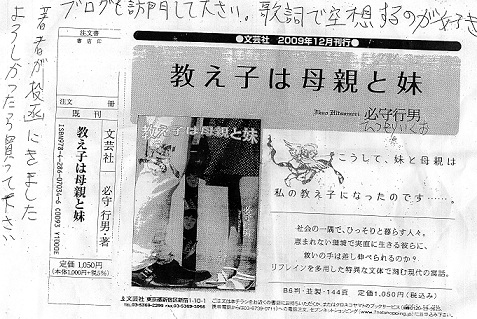 ブログも訪問して下さい。歌詞で空想するのが好き
著者が投函にきました
よろしかったら買って下さい
注文書
書店印
注文 冊
既刊
文芸社
必守行男・著
教え子は母親と妹
定価1,050円
(本体1,000円+税5%)
●文芸社 2009年12月刊行●
教え子は母親と妹
必守行男
教え子は母親と妹
こうして、妹と母親は
私の教え子になったのです……。
社会の一隅で、ひっそりと暮らす人々。
恵まれない環境で実直に生きる彼らに、
救いの手は差し伸べられるのか?
リフレインを多用した特異な文体で淵む現代の寓話。
B6判・並製・144頁 定価1,050円(税込み)
文芸社 東京都新宿区新宿1-10-1